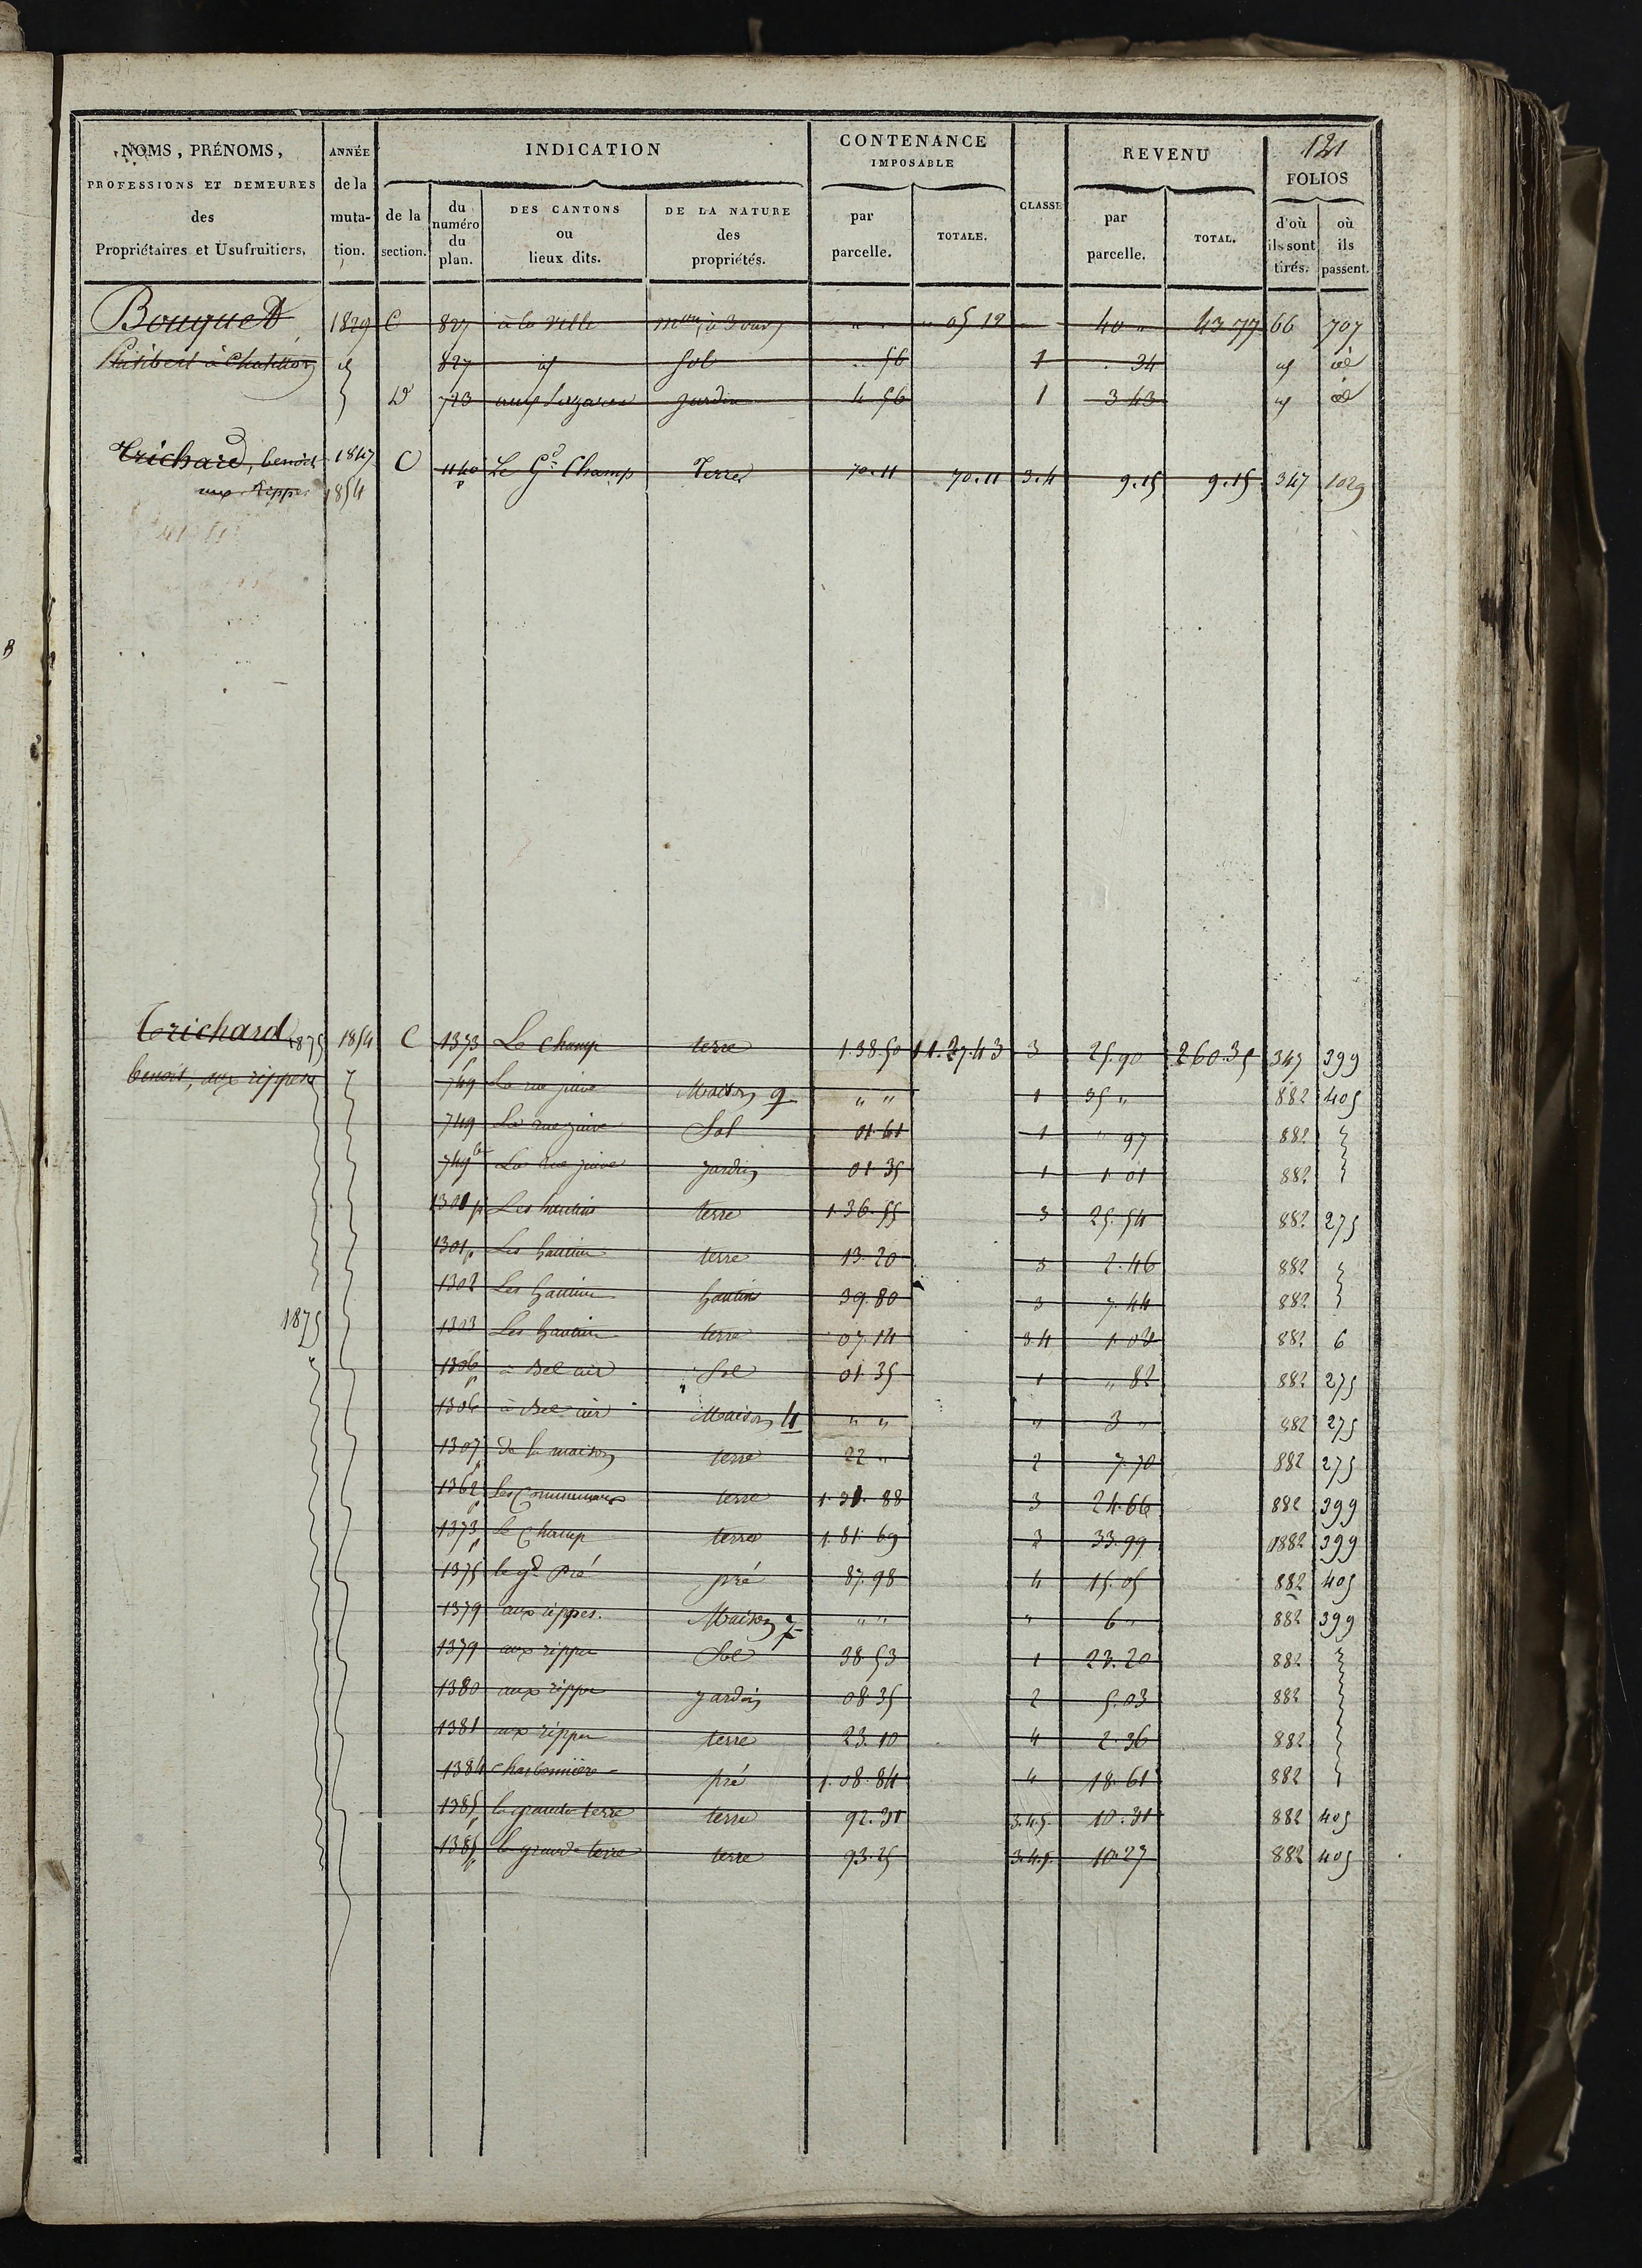 121
NOMS, PRÉNOMS, PROFESSIONS ET DEMEURES des Propriétaires et Usufruitiers.
ANNÉE de la muta-tion.
INDICATION
de la section.
du numéro du plan.
DES CANTONS ou lieux dits.
DE LA NATURE des propriétés.
CONTENANCE IMPOSABLE
par parcelle.
TOTALE.
CLASSE
REVENU
par parcelle.
TOTAL.
FOLIOS
d'où ils sont tirés.
où ils passent.
Bouquet 1829 C 827 à la ville 05 12 40 " 43 77 66 707
Philibert à Chatillon 827 id Sol 56 1 34 id id
D 723 jardin 4 56 1 3 43 id id
Trichard, benoit 1847 C 1140 p Le Gd Champ Terre 70.11 70.11 3.4 9.15 9.15 347 1029
aux Rippes 1854
Trichard 1875 1854 C 1373 p Le Champ terre 1.38.50 11.27.43 3 25.90 260.35 347 399
benoit, aux rippes 749 La rue juive Maison 9 " " 1 35 " 882 405
749 La rue juive Sol 01 61 1 " 97 882
749 b La rue juive jardin 01 35 1 1 01 882
1301 p Les hautins terre 1.36.55 3 25.54 882 275
1301 p Les hautins terre 13.20 3 2.46 882
1302 Les hautins hautin 39.80 3 7.44 882
1875 1303 Les hautins terre 07.14 3 4 1.04 882 6
1306 p à Bel air Sol 01.35 1 " 82 882 275
1306 à Bel air Maison 4 " " " 3 " 882 275
1307 p de la maison terre 22 " 2 7.70 882 275
1362 p Les Communaux terre 1.31.88 3 24.66 882 399
1373 p le Champ terre 1.81.69 3 33.99 882 399
1375 le gd Pré pré 87.98 4 15.05 882 405
1379 aux rippes. Maison 7 " " " 6 " 882 399
1379 aux rippes Sol 38.53 1 23.20 882
1380 aux rippes jardin 08 35 2 5.03 882
1381 aux rippes terre 23.10 4 2.36 882
1384 Charbonnière pré 1.08.84 4 18.61 882
1385 p la grande terre terre 92.31 3.4.5. 10.31 882 405
1385 p la grande terre terre 93.25 3.4.5. 10.27 882 405